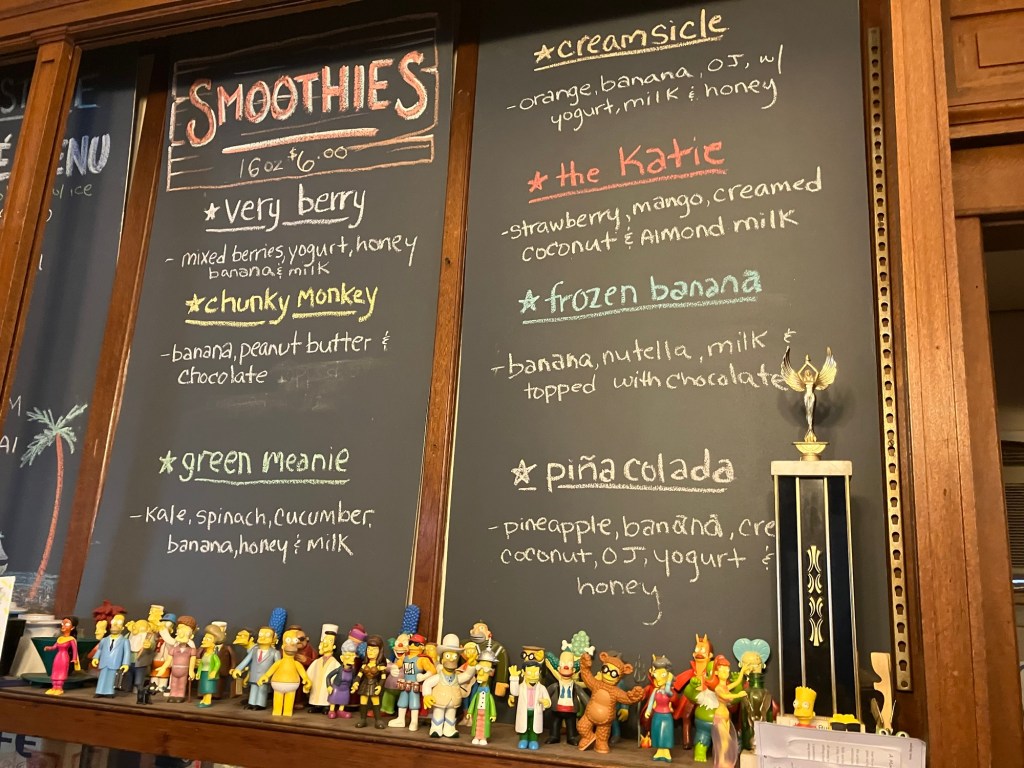 ENU
SMOOTHIES
16 oz $6.00
★ very berry
- mixed berries, yogurt, honey
banana & milk
★ chunky monkey
- banana, peanut butter &
chocolate
★ green meanie
- kale, spinach, cucumber,
banana, honey & milk
★ creamsicle
- orange, banana, OJ, w/
yogurt, milk & honey
★ the Katie
- strawberry, mango, creamed
coconut & Almond milk
★ frozen banana
- banana, nutella, milk &
topped with chocolate
★ piña colada
- pineapple, banana, cre
coconut, OJ, yogurt &
honey